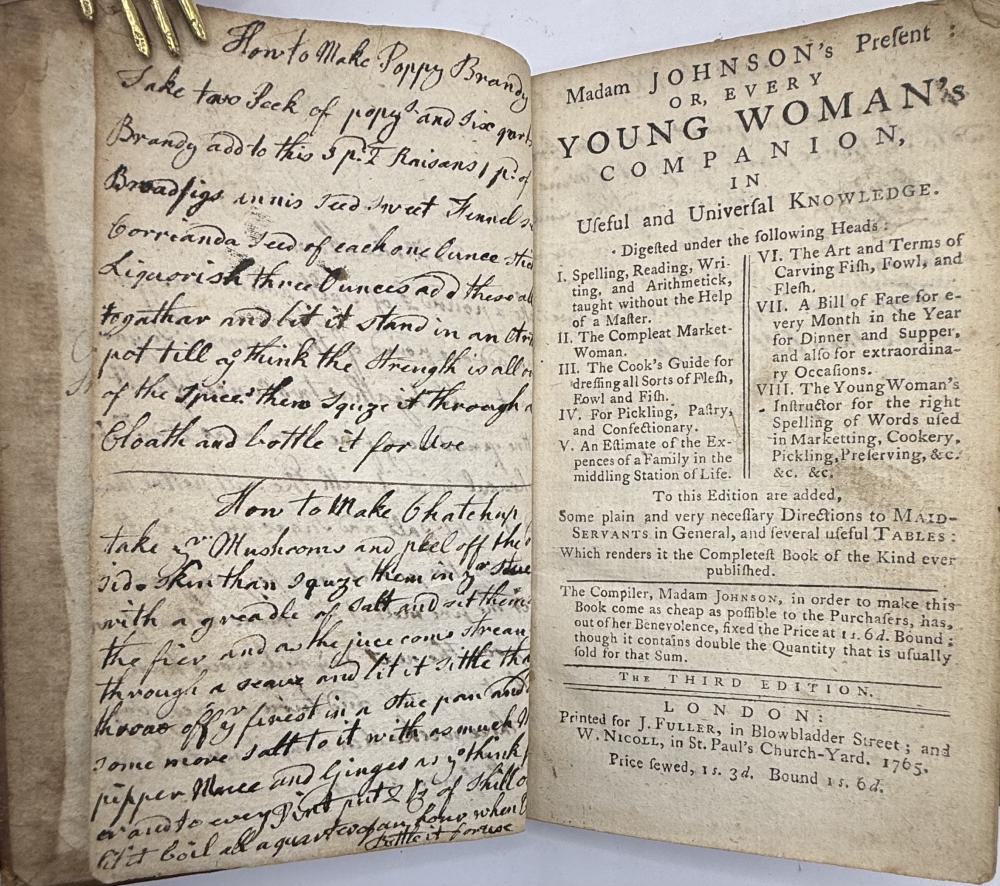 How to Make Poppy Brandy
Take two Peck of popys and Six quarts
Brandy add to this 3 pd Raisans 1 pd of
Broadfigs innis Seed Sweet Fennel
Correanda Seed of each one Ounce
Liquorish three Ounces add these all
togathar and lit it stand in an
pot till think the Strength is all
of the Spices then Squze it through a
Cloath and bottle it for Use
How to Make Chatchup
take yr Mushcoms and peel off the
side skin than squze them in yr
with a greadle of salt and sit them
the fier and as the juce coms strean
through a seave and lit it sittle than
throw off yr finest in a stue pan and
some more salt to it with as much
pipper Mace and Ginger as think
and to every Pint put
lit it boil all a quarter of an hour when
Bottle it for use
Madam JOHNSON's Preſent:
OR, EVERY
YOUNG WOMAN's
COMPANION,
IN
Uſeful and Univerſal KNOWLEDGE.
Digeſted under the following Heads:
I. Spelling, Reading, Wri-
ting, and Arithmetick,
taught without the Help
of a Maſter.
II. The Compleat Market-
Woman.
III. The Cook's Guide for
dreſſing all Sorts of Fleſh,
Fowl and Fiſh.
IV. For Pickling, Paſtry,
and Confectionary.
V. An Eſtimate of the Ex-
pences of a Family in the
middling Station of Life.
VI. The Art and Terms of
Carving Fiſh, Fowl, and
Fleſh.
VII. A Bill of Fare for e-
very Month in the Year
for Dinner and Supper,
and alſo for extraordina-
ry Occaſions.
VIII. The Young Woman's
Inſtructor for the right
Spelling of Words uſed
in Marketting, Cookery,
Pickling, Preſerving, &c.
&c. &c.
To this Edition are added,
Some plain and very neceſſary Directions to MAID-
SERVANTS in General, and ſeveral uſeful TABLES:
Which renders it the Completeſt Book of the Kind ever
publiſhed.
The Compiler, Madam JOHNSON, in order to make this
Book come as cheap as poſſible to the Purchaſers, has,
out of her Benevolence, fixed the Price at 1s. 6d. Bound;
though it contains double the Quantity that is uſually
ſold for that Sum.
THE THIRD EDITION.
LONDON:
Printed for J. FULLER, in Blowbladder Street; and
W. NICOLL, in St. Paul's Church-Yard. 1765.
Price ſewed, 1s. 3d. Bound 1s. 6d.